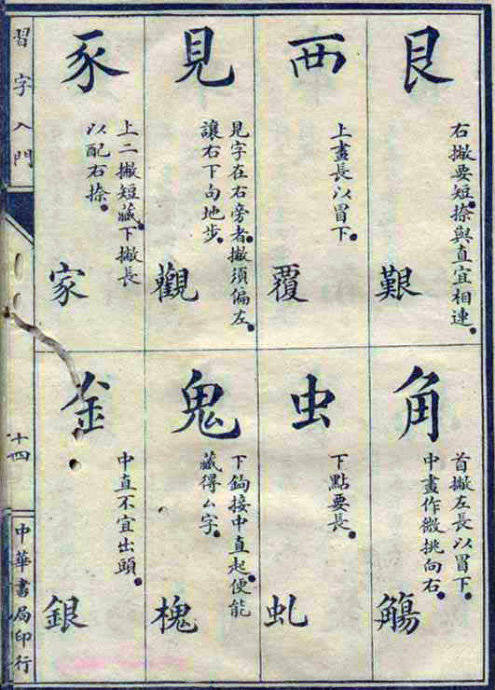 艮
右撇要短。捺與直宜相連。
艱
西
上畫長以冒下。
覆
見
見字在右旁者。撇須偏左。
讓右下勾地步。
觀
豕
上二撇短藏。下撇長
以配右捺。
家
角
首撇左長以冒下。
中畫作微挑向右。
觴
虫
下點要長。
虬
鬼
下鈎接中直起。便能
藏得厶字。
槐
金
中直不宜出頭。
銀
習字入門
十四
中華書局印行